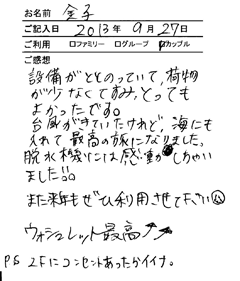 お名前 金子
ご記入日 2013年 9月 27日
ご利用 ロファミリー ログループ カップル
ご感想
設備がととのっていて、荷物
が少なくてすみ、とっても
よかったです。
台風がきていたけれど、海にも
入れて最高の旅になりました。
脱水機には感動しちゃい
ました!!
また来年もぜひ利用させて下さい
ウォシュレット最高
P.S 2Fにコンセントあったからイイナ。